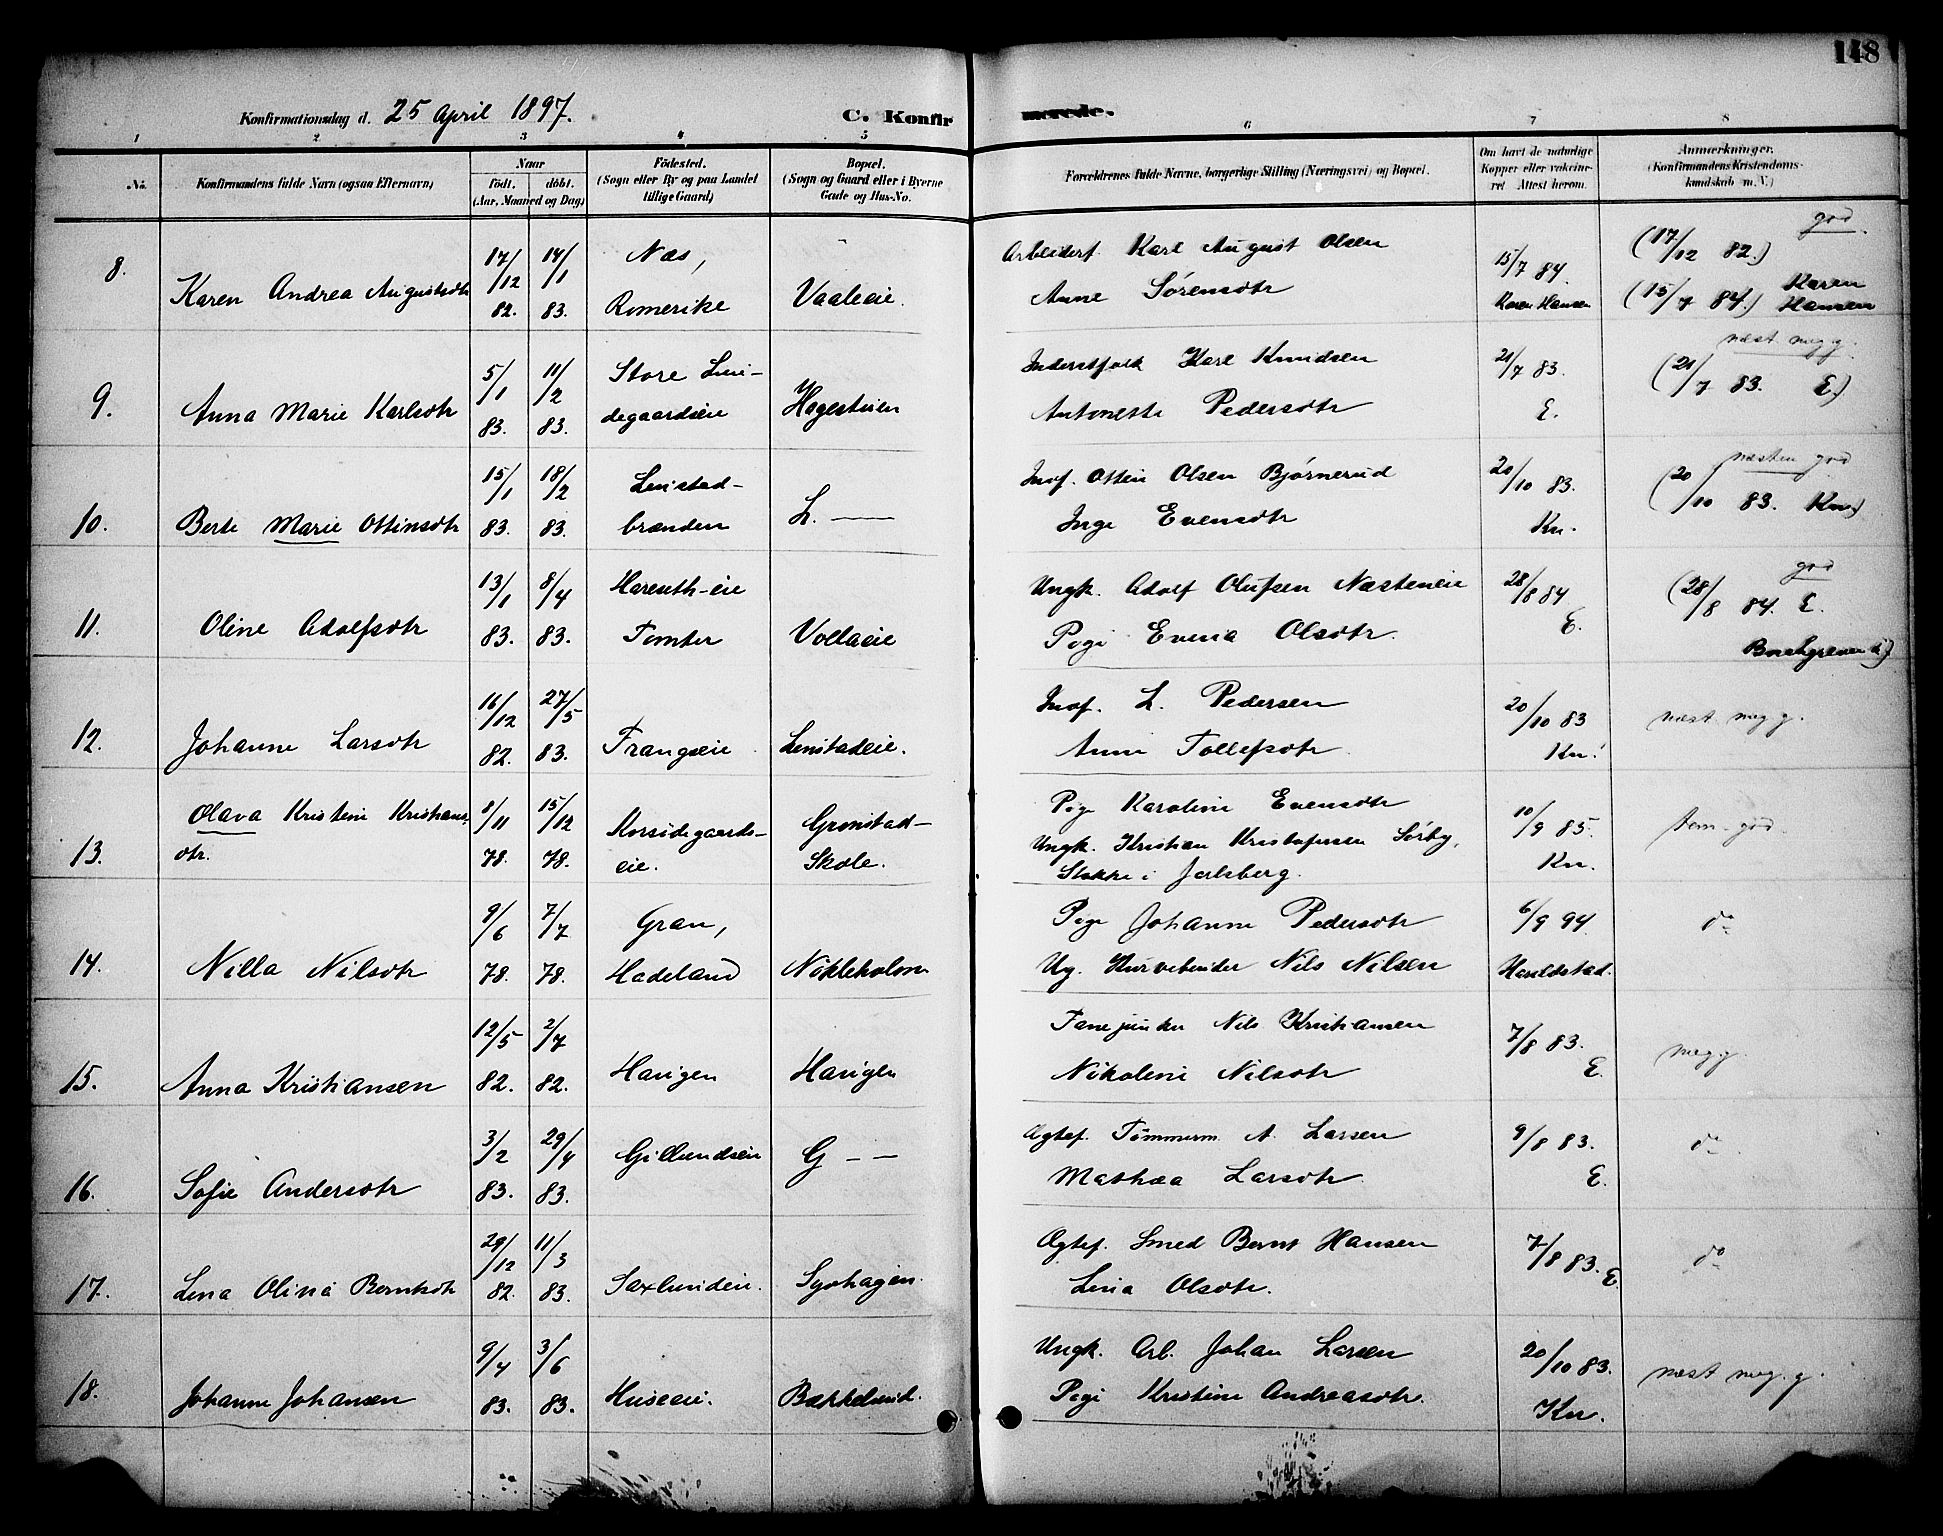 148
Konfirmationsdag d. 25 April 1897. C. Konfir merede.
1 2 3 4 5 6 7 8
No. Konfirmandens fulde Navn (ogsaa Efternavn) Naar født. døbt. (Aar, Maaned og Dag) Födested. (Sogn eller By og paa Landet tillige Gaard) Bopæl. (Sogn og Gaard eller i Byerne Gade og Hus-No. Forældrenes fulde Navne, borgerlige Stilling (Næringsvei) og Bopæl. Om havt de naturlige Kopper eller vakcineret Attest herom. Anmærkninger. (Konfirmandens Kristendomskundskab m.V.)
8. Karen Andrea Augustsdtr 17/12 82. 14/1 83. Næs, Romerike Vaaleeie. Arbeiderf. Karl August Olsen
Anne Sörensdtr 15/7 84. Karen Hansen god. (17/12 82.) (15/7 84.) Karen Hansen
9. Anna Marie Karlsdtr 5/1 83. 11/2 83. Store Linde-
degaardseie Hagestuen Inderstfolk Karl Knudsen
Antonette Pedersdtr 21/7 83. E. næst meg g. (21/7 83. E.)
10. Berte Marie Ottinsdtr 15/1 83. 18/2 83. Linstad-
brænden L. — Indf. Ottin Olsen Bjørnerud
Inge Evensdtr 20/10 83. Kn. næsten god (20/10 83. Kn.)
11. Oline Adolfsdtr 13/1 83. 8/4 83. Harenth-eie
Tomter Vollaeie Ungk. Adolf Olufsen Næsteneie
Pige Evena Olsdtr. 28/8 84 E. god (28/8 84. E.
12. Johanne Larsdtr 16/12 82. 27/5 83. Frangseie Linstadeie. Indf. L. Pedersen
Anne Tollefsdtr 20/10 83 Kn. næst meg g.
13. Olava Kristine Kristians
dtr. 8/11 78. 15/12 78. Korsödegaards-
eie. Grinstad-
Skole. Pige Karoline Evensdtr
Ungk. Kristian Kristofersen Sörby,
Stokke i Jarlsberg. 10/9 85. Kn. tem. god.
14. Nilla Nilsdtr 9/6 78. 7/7 78. Gran,
Hadeland Nökleholm Pige Johanne Pedersdtr
Ug. Kurvebinder Nils Nilsen 6/9 94. Haraldstad. do
15. Anna Kristiansen 12/5 82. 2/7 82. Haugen Haugen Fanejunker Nils Kristiansen
Nikoline Nilsdtr 7/8 83. E. meg g.
16. Sofie Andersdtr 3/2 83. 29/4 83. Gillundseie G — — Ægtef. Tømmerm. A. Larsen
Mathea Larsdtr. 9/8 83. E. do
17. Lina Olina Berntsdtr 29/12 82. 11/3 83. Saxlundeie. Syohagen. Ægtef. Smed Bernt Hansen
Lina Olsdtr. 7/8 83. E. do
18. Johanne Johansen 9/4 83. 3/6 83. Huseeie. Bækkelund. Ungk. Arb. Johan Larsen
Pige Kristine Andreasdtr. 20/10 83. Kn. næst meg. g.